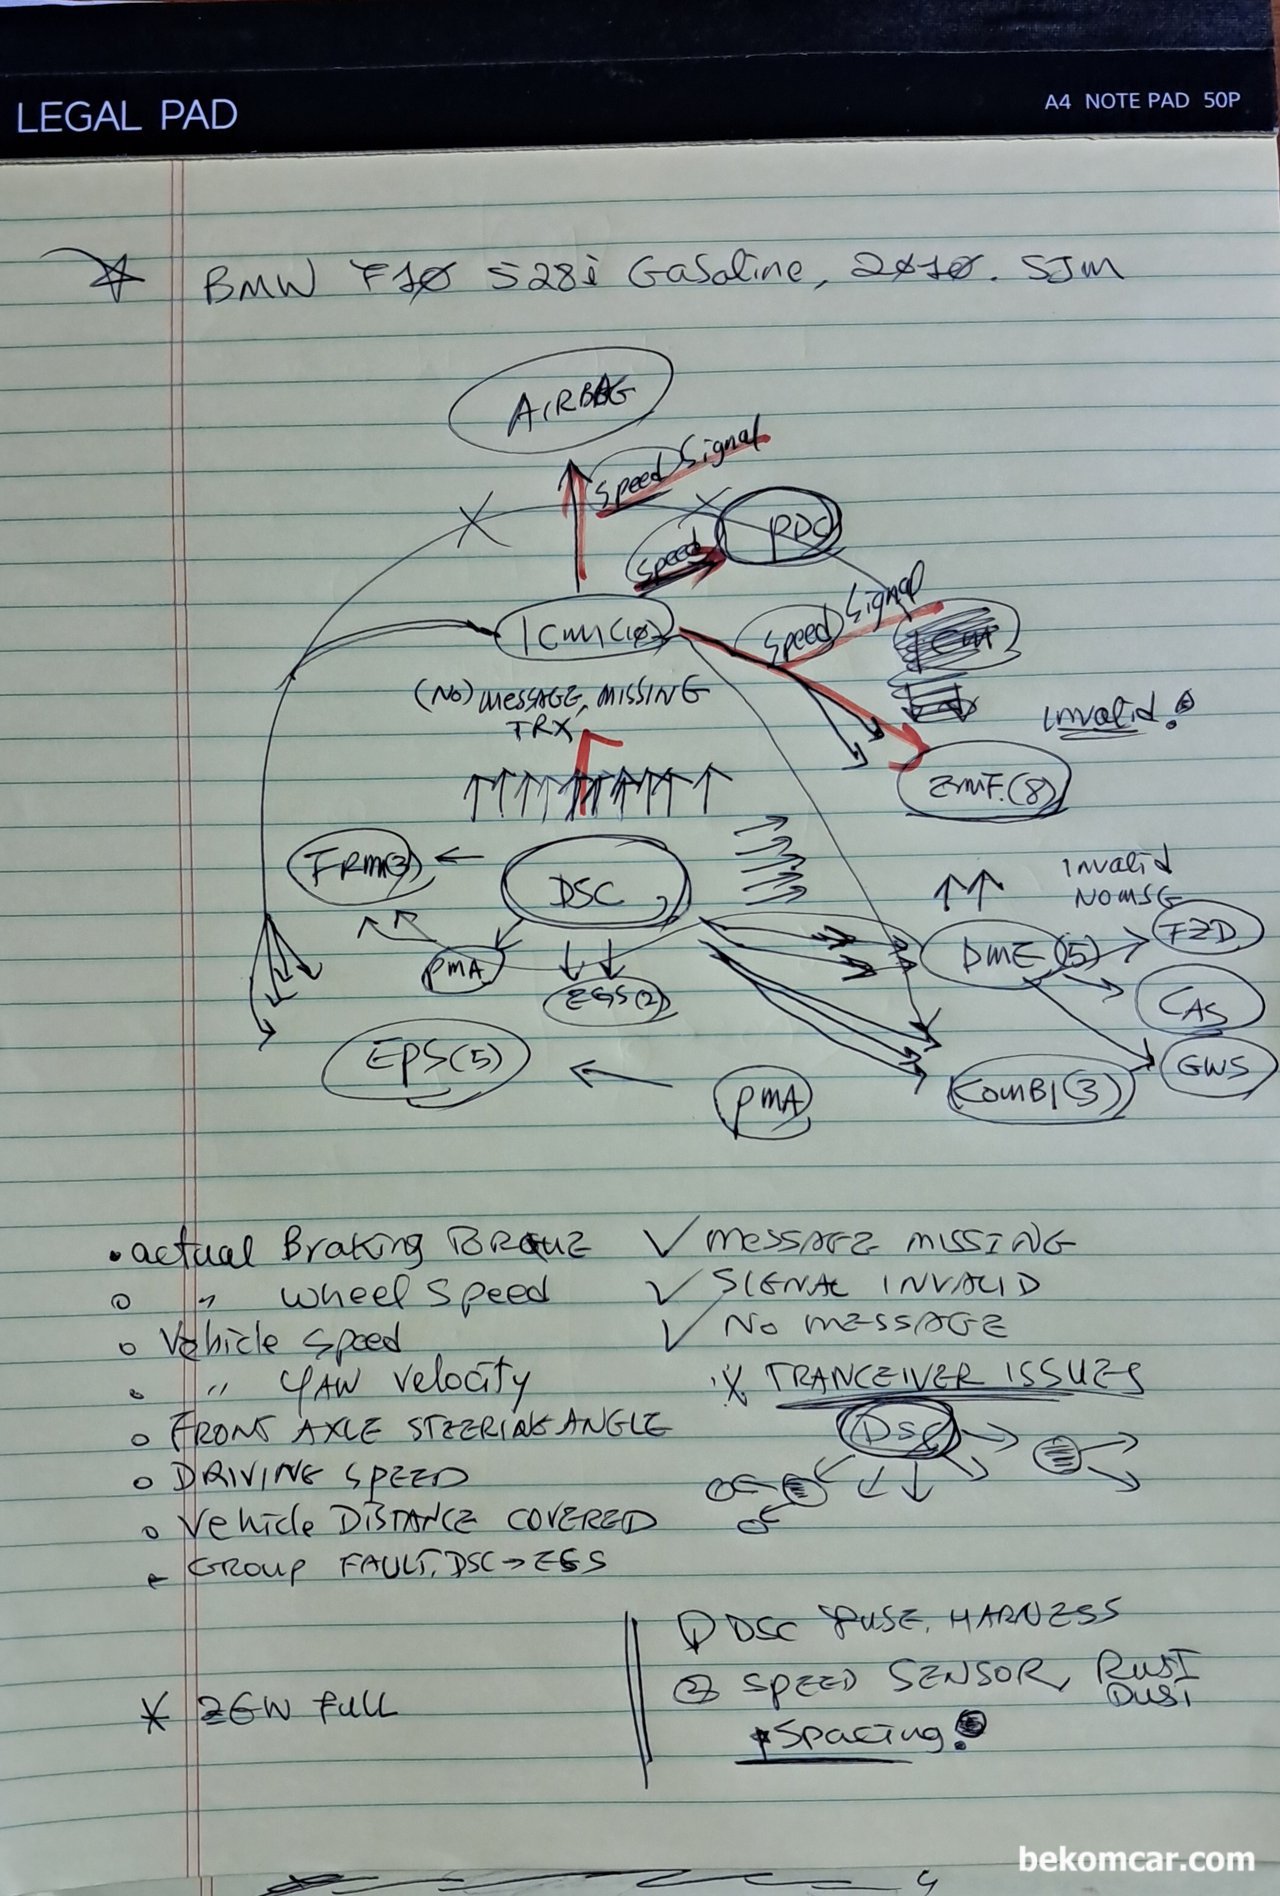 LEGAL PAD
A4 NOTE PAD 50P
BMW F10 528i Gasoline, 2010. SJM
AIRBAG
Speed Signal
Speed
PDC
ICM(10)
Speed Signal
(NO) MESSAGE, MISSING
TRX
Invalid!
ZMF.(8)
FRM(3)
DSC
Invalid
NO MSG
FZD
PMA
EGS(2)
DME(5)
CAS
EPS(5)
PMA
KOMBI(3)
GWS
• actual Braking TORQUE ✓ MESSAGE MISSING
○ " wheel Speed ✓ SIGNAL INVALID
○ Vehicle Speed ✓ NO MESSAGE
○ " YAW Velocity ※ TRANCEIVER ISSUES
○ FRONT AXLE STEERING ANGLE
DSC
○ DRIVING SPEED
○ Vehicle DISTANCE COVERED
GROUP FAULT, DSC → EGS
① DSC FUSE, HARNESS
② SPEED SENSOR, RUST
DUST
* ZGW FULL
Spacing!
bekomcar.com